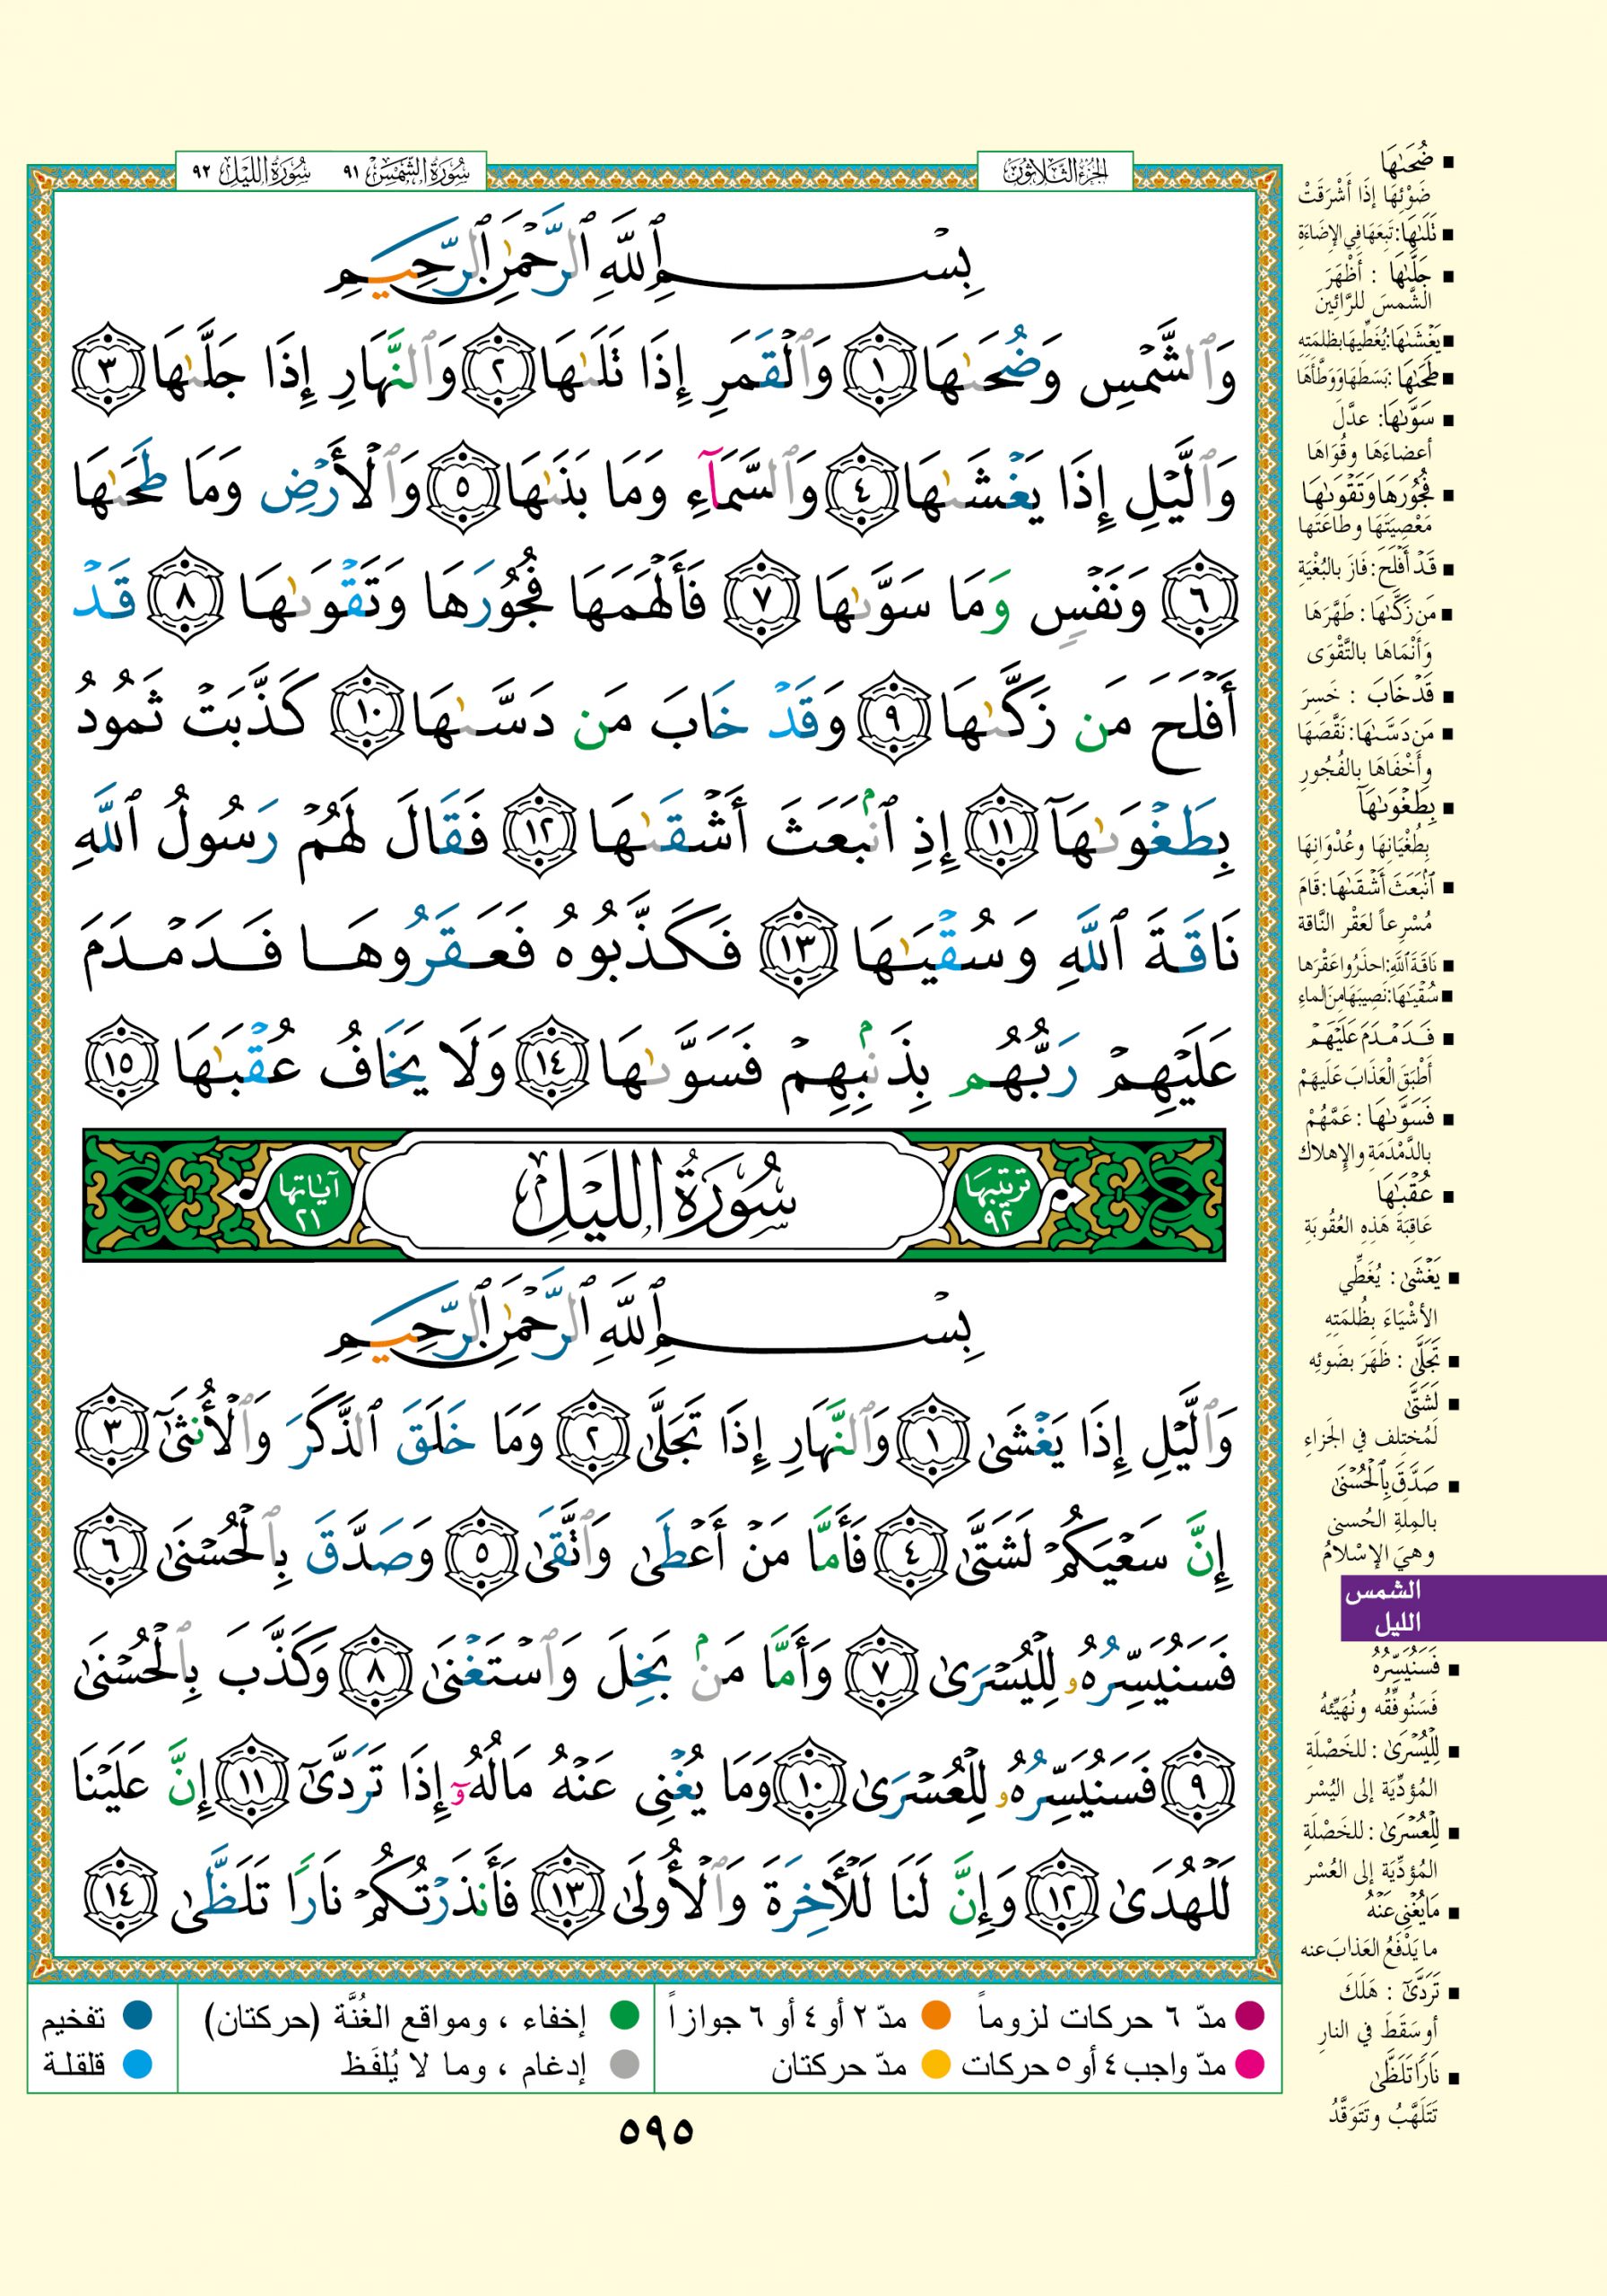 الجزء الثلاثون
سورة الشمس ٩١ سورة الليل ٩٢
بِسْمِ ٱللَّهِ ٱلرَّحْمَٰنِ ٱلرَّحِيمِ
وَٱلشَّمْسِ وَضُحَىٰهَا ١ وَٱلْقَمَرِ إِذَا تَلَىٰهَا ٢ وَٱلنَّهَارِ إِذَا جَلَّىٰهَا ٣
وَٱلَّيْلِ إِذَا يَغْشَىٰهَا ٤ وَٱلسَّمَآءِ وَمَا بَنَىٰهَا ٥ وَٱلْأَرْضِ وَمَا طَحَىٰهَا
٦ وَنَفْسٍ وَمَا سَوَّىٰهَا ٧ فَأَلْهَمَهَا فُجُورَهَا وَتَقْوَىٰهَا ٨ قَدْ
أَفْلَحَ مَن زَكَّىٰهَا ٩ وَقَدْ خَابَ مَن دَسَّىٰهَا ١٠ كَذَّبَتْ ثَمُودُ
بِطَغْوَىٰهَآ ١١ إِذِ ٱنۢبَعَثَ أَشْقَىٰهَا ١٢ فَقَالَ لَهُمْ رَسُولُ ٱللَّهِ
نَاقَةَ ٱللَّهِ وَسُقْيَٰهَا ١٣ فَكَذَّبُوهُ فَعَقَرُوهَا فَدَمْدَمَ
عَلَيْهِمْ رَبُّهُم بِذَنۢبِهِمْ فَسَوَّىٰهَا ١٤ وَلَا يَخَافُ عُقْبَٰهَا ١٥
ترتيبها ٩٢ سُورَةُ اللَّيْلِ آياتها ٢١
بِسْمِ ٱللَّهِ ٱلرَّحْمَٰنِ ٱلرَّحِيمِ
وَٱلَّيْلِ إِذَا يَغْشَىٰ ١ وَٱلنَّهَارِ إِذَا تَجَلَّىٰ ٢ وَمَا خَلَقَ ٱلذَّكَرَ وَٱلْأُنثَىٰٓ ٣
إِنَّ سَعْيَكُمْ لَشَتَّىٰ ٤ فَأَمَّا مَنْ أَعْطَىٰ وَٱتَّقَىٰ ٥ وَصَدَّقَ بِٱلْحُسْنَىٰ ٦
فَسَنُيَسِّرُهُۥ لِلْيُسْرَىٰ ٧ وَأَمَّا مَنۢ بَخِلَ وَٱسْتَغْنَىٰ ٨ وَكَذَّبَ بِٱلْحُسْنَىٰ
٩ فَسَنُيَسِّرُهُۥ لِلْعُسْرَىٰ ١٠ وَمَا يُغْنِى عَنْهُ مَالُهُۥٓ إِذَا تَرَدَّىٰٓ ١١ إِنَّ عَلَيْنَا
لَلْهُدَىٰ ١٢ وَإِنَّ لَنَا لَلْأَخِرَةَ وَٱلْأُولَىٰ ١٣ فَأَنذَرْتُكُمْ نَارًا تَلَظَّىٰ ١٤
▪ ضُحَىٰهَا
ضَوْئِهَا إذَا أَشْرَقَتْ
▪ تَلَىٰهَا: تَبِعَهَا في الإضَاءَةِ
▪ جَلَّىٰهَا : أَظْهَرَ
الشَّمسَ للرَّائِينَ
▪ يَغْشَىٰهَا: يُغَطِّيهَا بظلمَتِهِ
▪ طَحَىٰهَا: بَسَطَهَا وَوَطَّأهَا
▪ سَوَّىٰهَا: عدَّلَ
أعضاءَهَا وقُوَاهَا
▪ فُجُورَهَا وَتَقْوَىٰهَا
مَعْصِيَتَهَا وطاعَتَها
▪ قَدْ أَفْلَحَ: فَازَ بالبُغْيَةِ
▪ مَن زَكَّىٰهَا: طَهَّرَهَا
وَأَنْمَاهَا بالتَّقْوَى
▪ قَدْ خَابَ : خَسِرَ
▪ مَن دَسَّىٰهَا: نَقَّصَهَا
وأَخْفَاهَا بالفُجُورِ
▪ بِطَغْوَىٰهَآ
بِطُغْيَانِهَا وعُدْوَانِهَا
▪ ٱنۢبَعَثَ أَشْقَىٰهَا: قَامَ
مُسْرِعاً لعَقْرِ النَّاقة
▪ نَاقَةَ ٱللَّهِ: احذَرُوا عَقْرَها
▪ سُقْيَٰهَا: نَصِيبَهَا مِنَ الماءِ
▪ فَدَمْدَمَ عَلَيْهِمْ
أَطْبَقَ العَذَابَ عَلَيهَمْ
▪ فَسَوَّىٰهَا: عَمَّهُمْ
بالدَّمْدَمَةِ والإهلاك
▪ عُقْبَٰهَا
عَاقِبَةَ هَذِهِ العُقُوبَةِ
▪ يَغْشَىٰ: يُغَطِّي
الأشْيَاءَ بِظُلمَتِهِ
▪ تَجَلَّىٰ : ظَهَرَ بضَوئِه
▪ لَشَتَّىٰ
لَمُختِلف في الجَزاءِ
▪ صَدَّقَ بِٱلْحُسْنَىٰ
بالمِلةِ الحُسنى
وهيَ الإسْلامُ
الشمس
الليل
▪ فَسَنُيَسِّرُهُ
فَسَنُوفِّقُه ونُهَيِّئهُ
▪ لِلْيُسْرَىٰ : للخَصْلَةِ
المُؤدِّيَة إلى اليُسْر
▪ لِلْعُسْرَىٰ : للخَصْلَةِ
المُؤدِّيَة إلى العُسْر
▪ مَا يُغْنِى عَنْهُ
ما يَدْفَعُ العَذابَ عنه
▪ تَرَدَّىٰٓ : هَلَكَ
أو سَقَطَ في النارِ
▪ نَارًا تَلَظَّىٰ
تَتَلَهَّبُ وتَتَوَقَّدُ
مدّ ٦ حركات لزوماً مدّ ٢ أو ٤ أو ٦ جوازاً إخفاء ، ومواقع الغُنَّة (حركتان) تفخيم
مدّ واجب ٤ أو ٥ حركات مدّ حركتان إدغام ، وما لا يُلفَظ قلقلة
٥٩٥